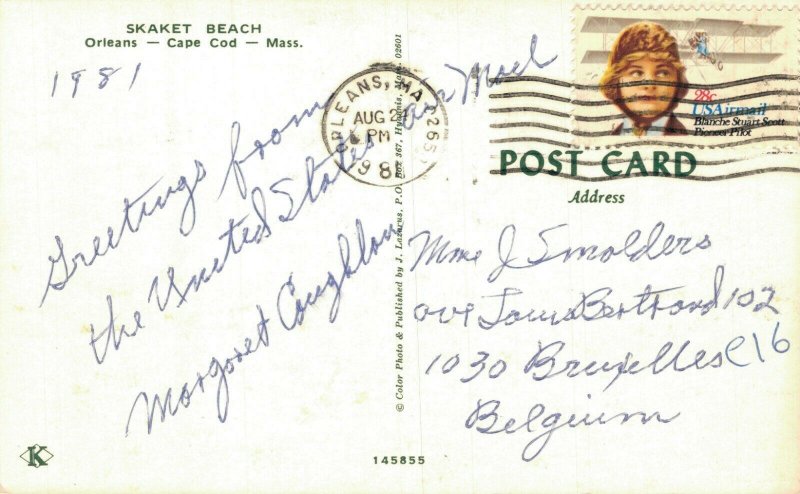 SKAKET BEACH
Orleans — Cape Cod — Mass.
1981
Greetings from
the United States
Margaret Coughlan
Air Mail
ORLEANS, MA
AUG 2
PM
198
28c
USAirmail
Blanche Stuart Scott
Pioneer Pilot
POST CARD
Address
Mme J Smolders
ave Louis Bertrand 102
1030 Bruxelles C16
Belgium
© Color Photo & Published by J. Lazarus, P.O. Box 367, Hyannis, Mass. 02601
K
145855